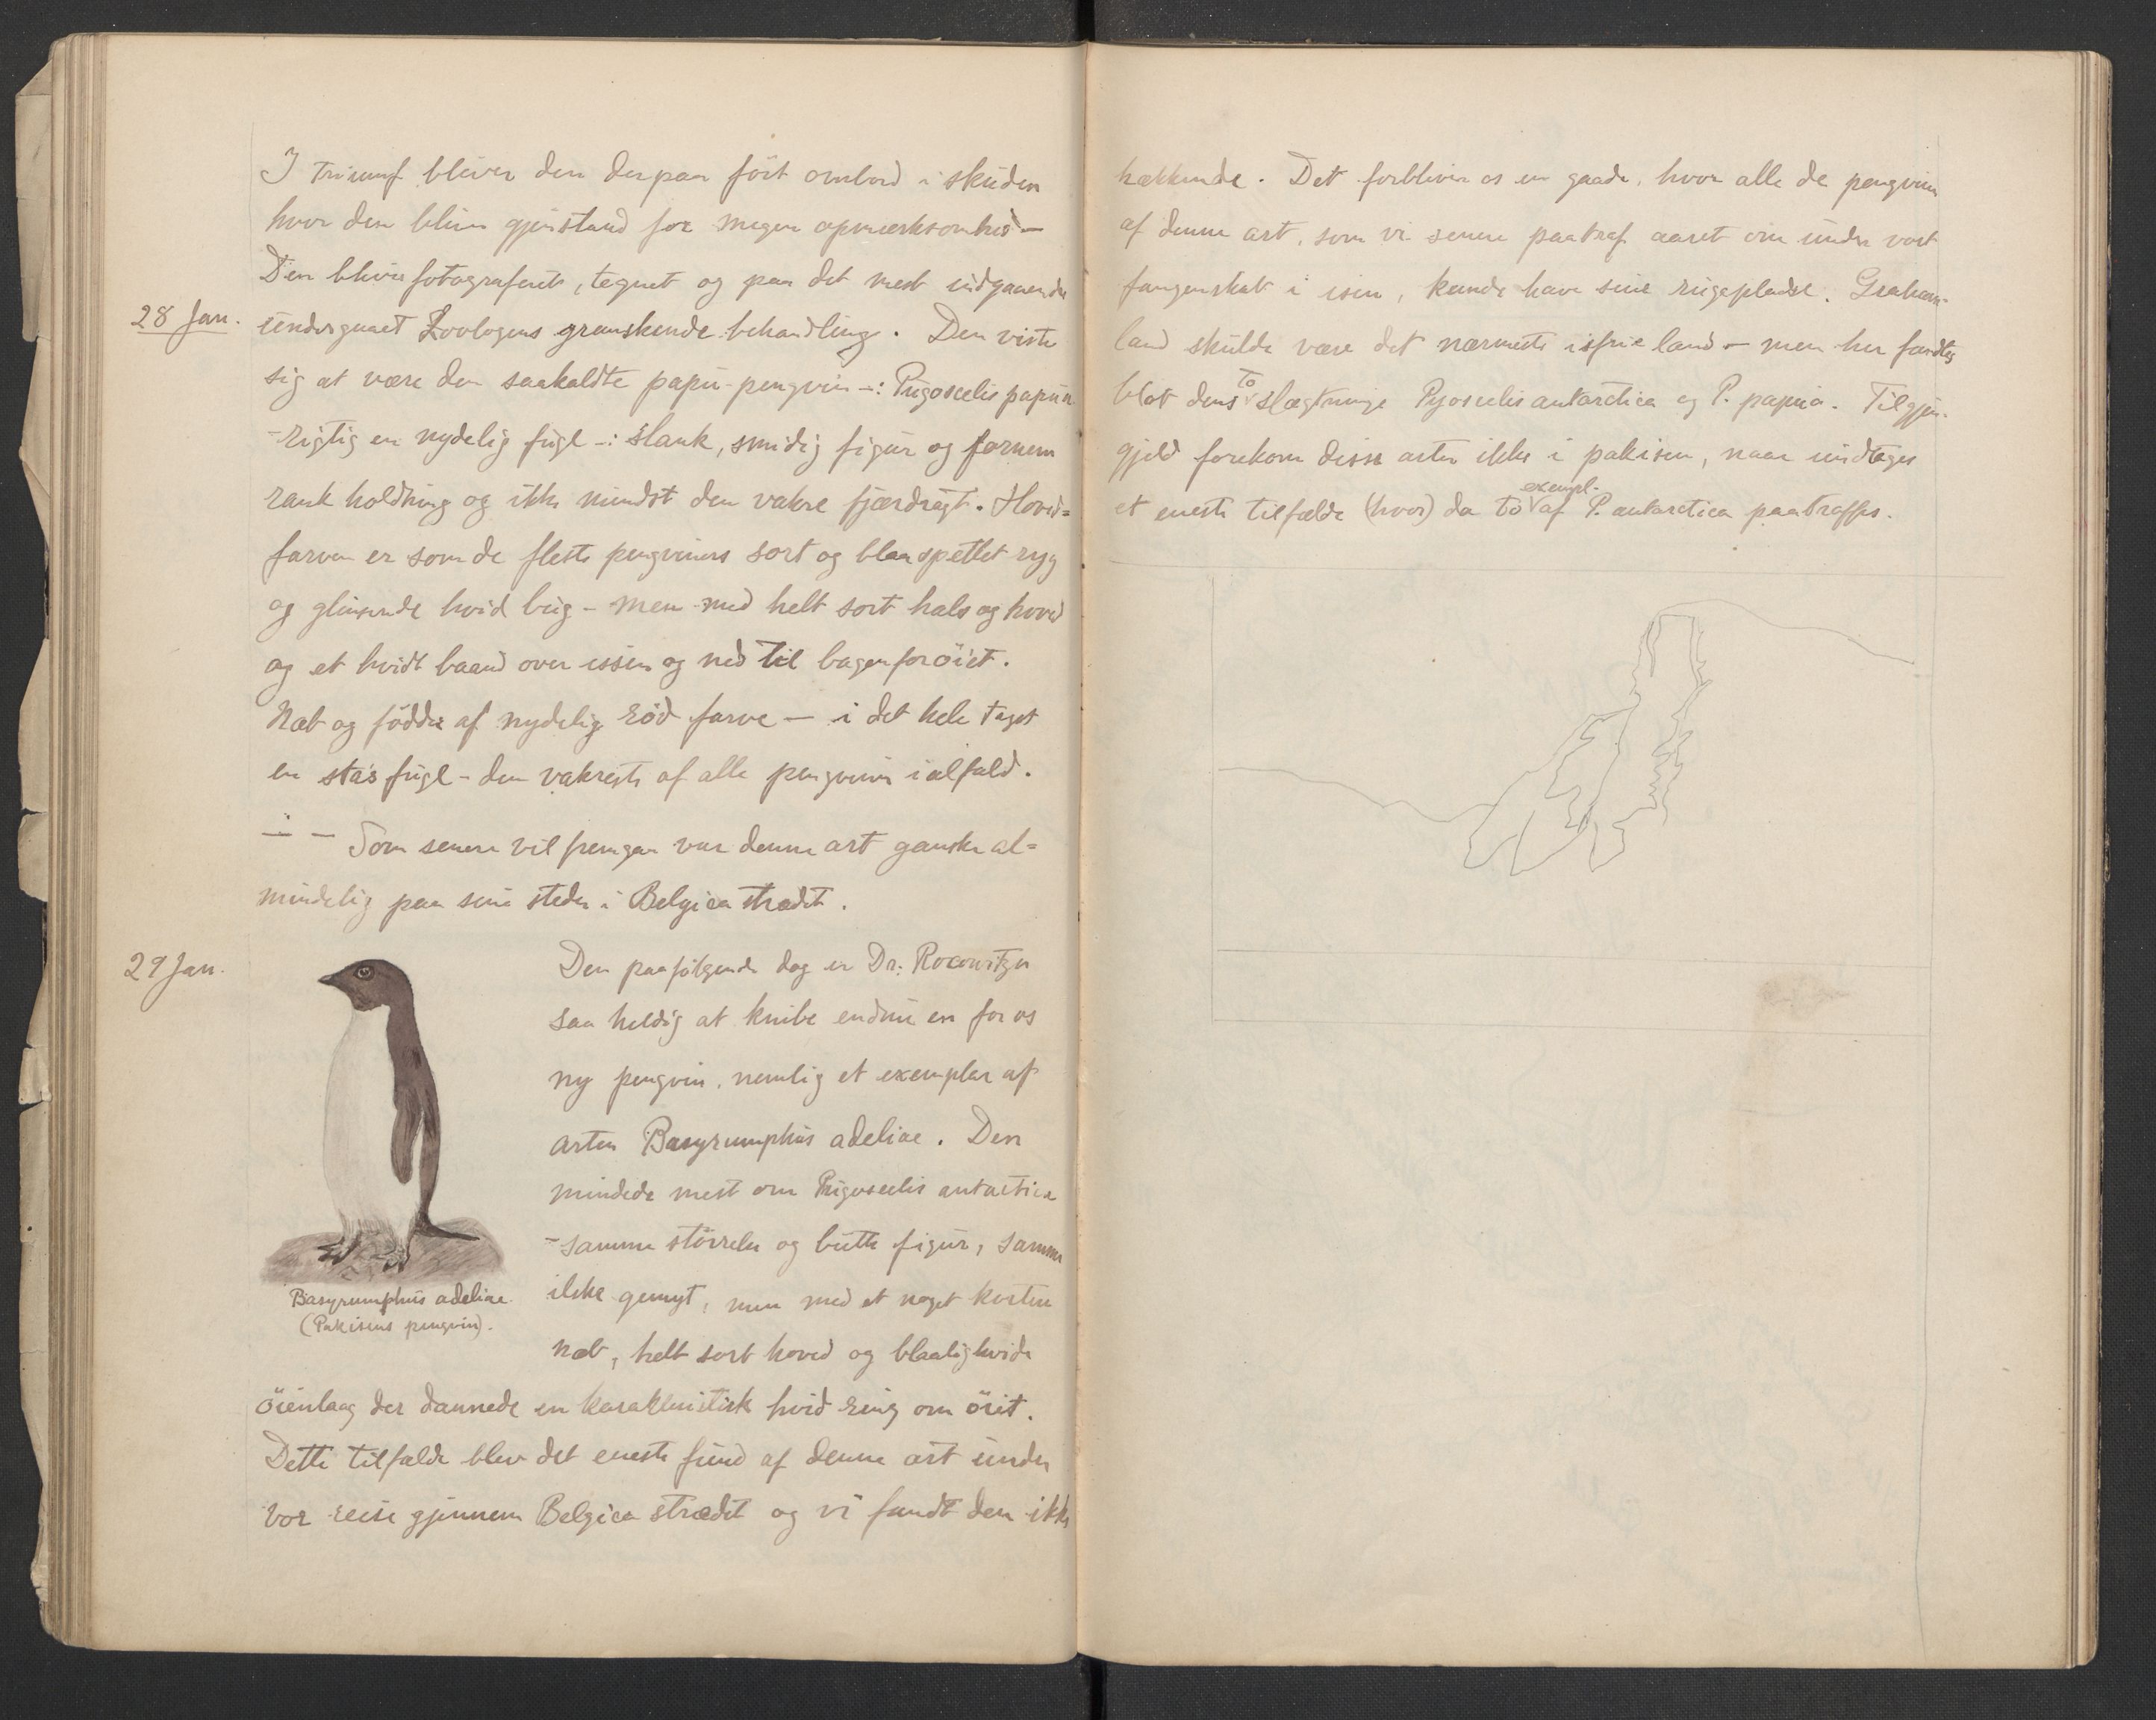 I triumf bliver den derpaa ført ombord i skuden
hvor den bliver gjenstand for megen opmærksomhed –
Den bliver fotograferet, tegnet og paa det mest indgaaende
28 Jan.
undergaaet Zoologens granskende behandling. Den viste
sig at være den saakaldte papu-pengvin –: Pygoscelis papua
– rigtig en nydelig fugl –: slank, smidig figur og fornem
rank holdning og ikke mindst den vakre fjærdragt. Hoved=
farven er som de fleste pengviners sort og blaaspettet ryg
og glinsende hvid bug – men med helt sort hals og hoved
og et hvidt baand over issen og ned til bagenfor öiet.
Næb og födder af nydelig röd farve – i det hele taget
en stas fugl – den vakreste af alle pengviner ialfald.
Som senere vil fremgaa var denne art ganske al=
mindelig paa sine steder i Belgica strædet.
29 Jan.
Den paafölgende dag er Dr: Racowitza
saa heldig at knibe endnu en for os
ny pengvin, nemlig et exemplar af
arten Basyrumphus adeliae. Den
mindede mest om Pygoscelis antarctica
– samme störrelse og butte figur, samme
ilske gemyt, men med et noget kortere
næb, helt sort hoved og blaalighvide
Basyrumphus adeliae.
(Pakisens pengvin).
öienlaag der dannede en karakteristisk hvid ring om öiet.
Dette tilfælde blev det eneste fund af denne art under
vor reise gjennem Belgica strædet og vi fandt den ikke
hækkende. Det forbliver os en gaade, hvor alle de pengviner
af denne art, som vi senere paatraf aaret om under vort
fangenskab i isen, kunde have sine rugepladse. Graham-
land skulde være det nærmeste isfrie land – men her fandtes
blot dens to slægtninge Pygoscelis antarctica og P. papua. Tilgjen-
gjeld forekom disse arter ikke i pakisen, naar undtages
et eneste tilfælde (hvor) da to exempl. af P. antarctica paatraffes.